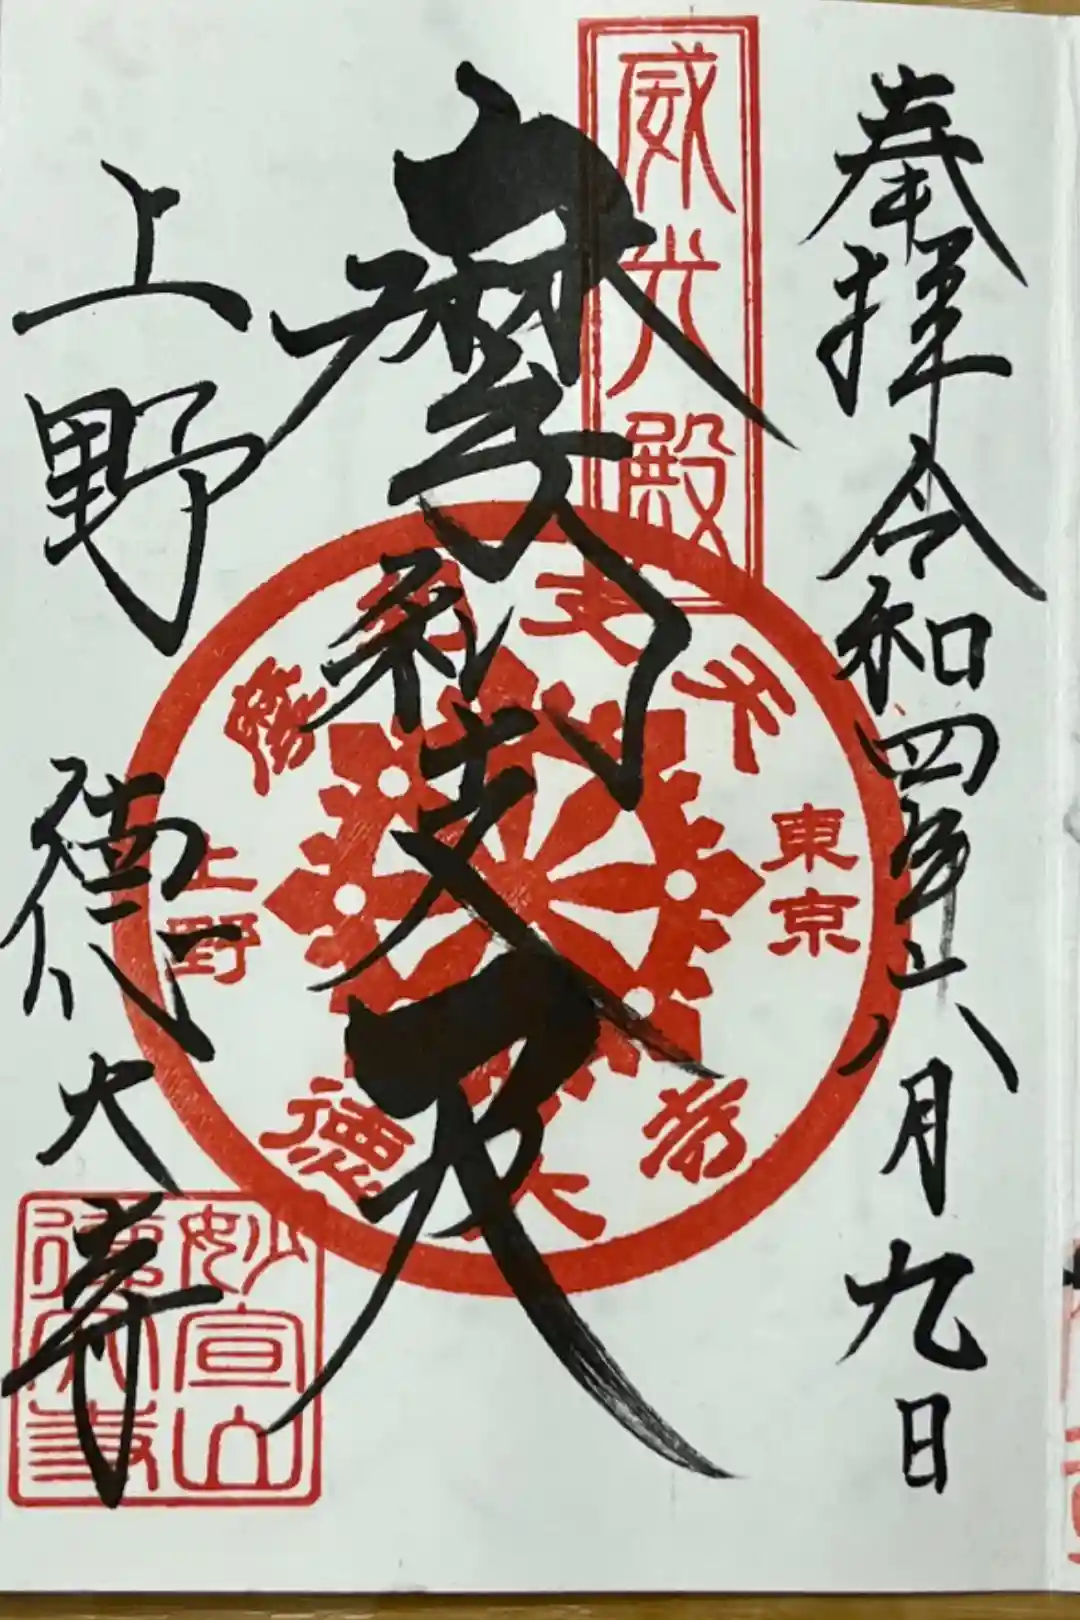 奉拝 令和四年六月九日
威光殿
摩利支天
摩利支天
東京
上野
德大寺
上野 德大寺
妙宣山
德大寺